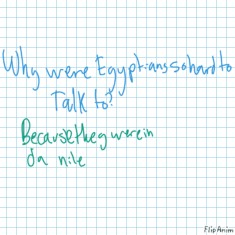 Why were Egyptians so hard to
Talk to?
Because they were in
da nile
FlipAnim